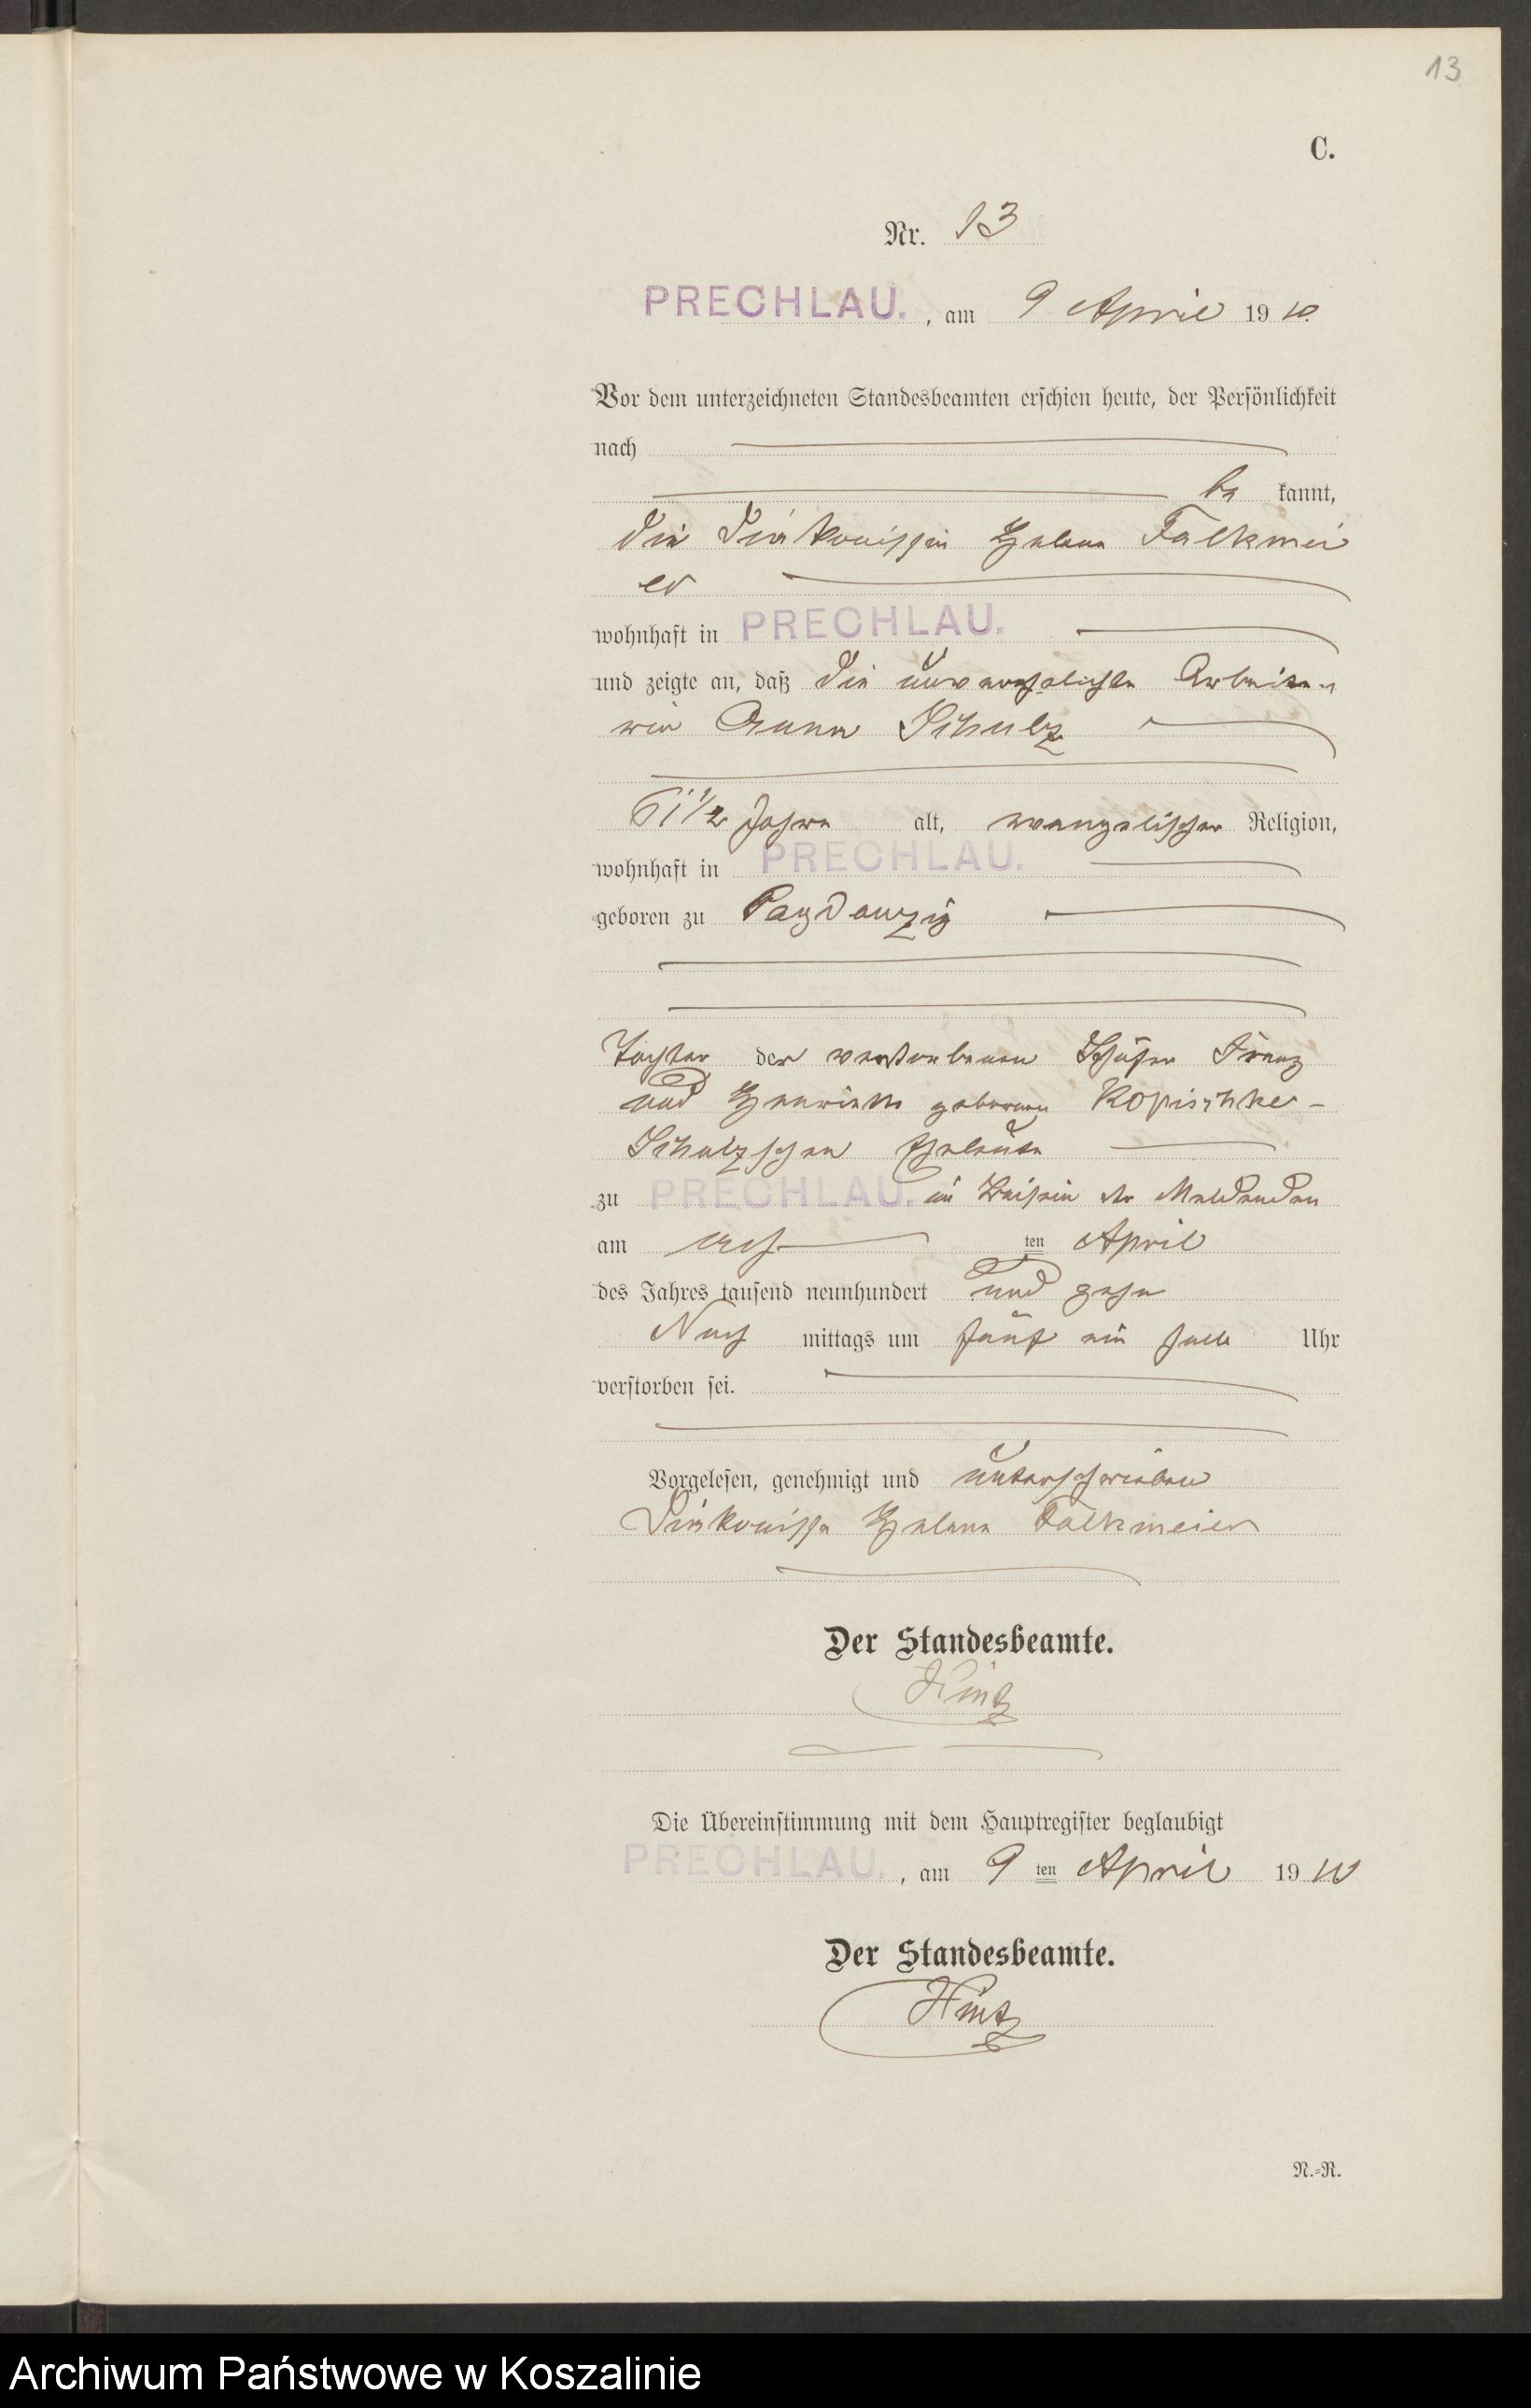 13
C.
Nr. 13
PRECHLAU. , am 9 April 19 10.
Vor dem unterzeichneten Standesbeamten erschien heute, der Persönlichkeit
nach
be kannt,
die Diakonissin Helene Falkmei
er
wohnhaft in PRECHLAU.
und zeigte an, daß die unverehelichte Arbeite-
rin Anna Schulz
61 1/2 Jahre alt, evangelischer Religion,
wohnhaft in PRECHLAU.
geboren zu Pagdanzig
Tochter der verstorbenen Schäfer Franz
und Henriette geborene Kopischke-
Schulzschen Eheleute
zu PRECHLAU. im Beisein der Meldenden
am acht ten April
des Jahres tausend neunhundert und zehn
Nach mittags um fünf ein halb Uhr
verstorben sei.
Vorgelesen, genehmigt und unterschrieben
Diakonisse Helene Falkmeier
Der Standesbeamte.
Hintz
Die Übereinstimmung mit dem Hauptregister beglaubigt
PRECHLAU. , am 9 ten April 19 10
Der Standesbeamte.
Hintz
N.-R.
Archiwum Państwowe w Koszalinie